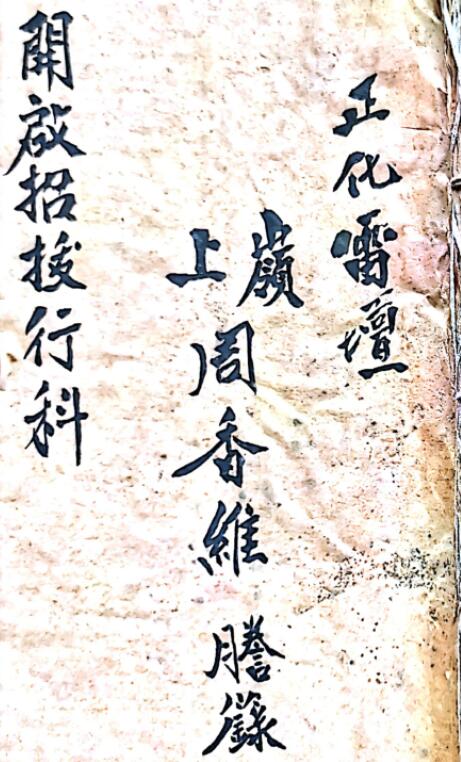 正化雷壇
嶺上周香維謄錄
開啟招拔行科